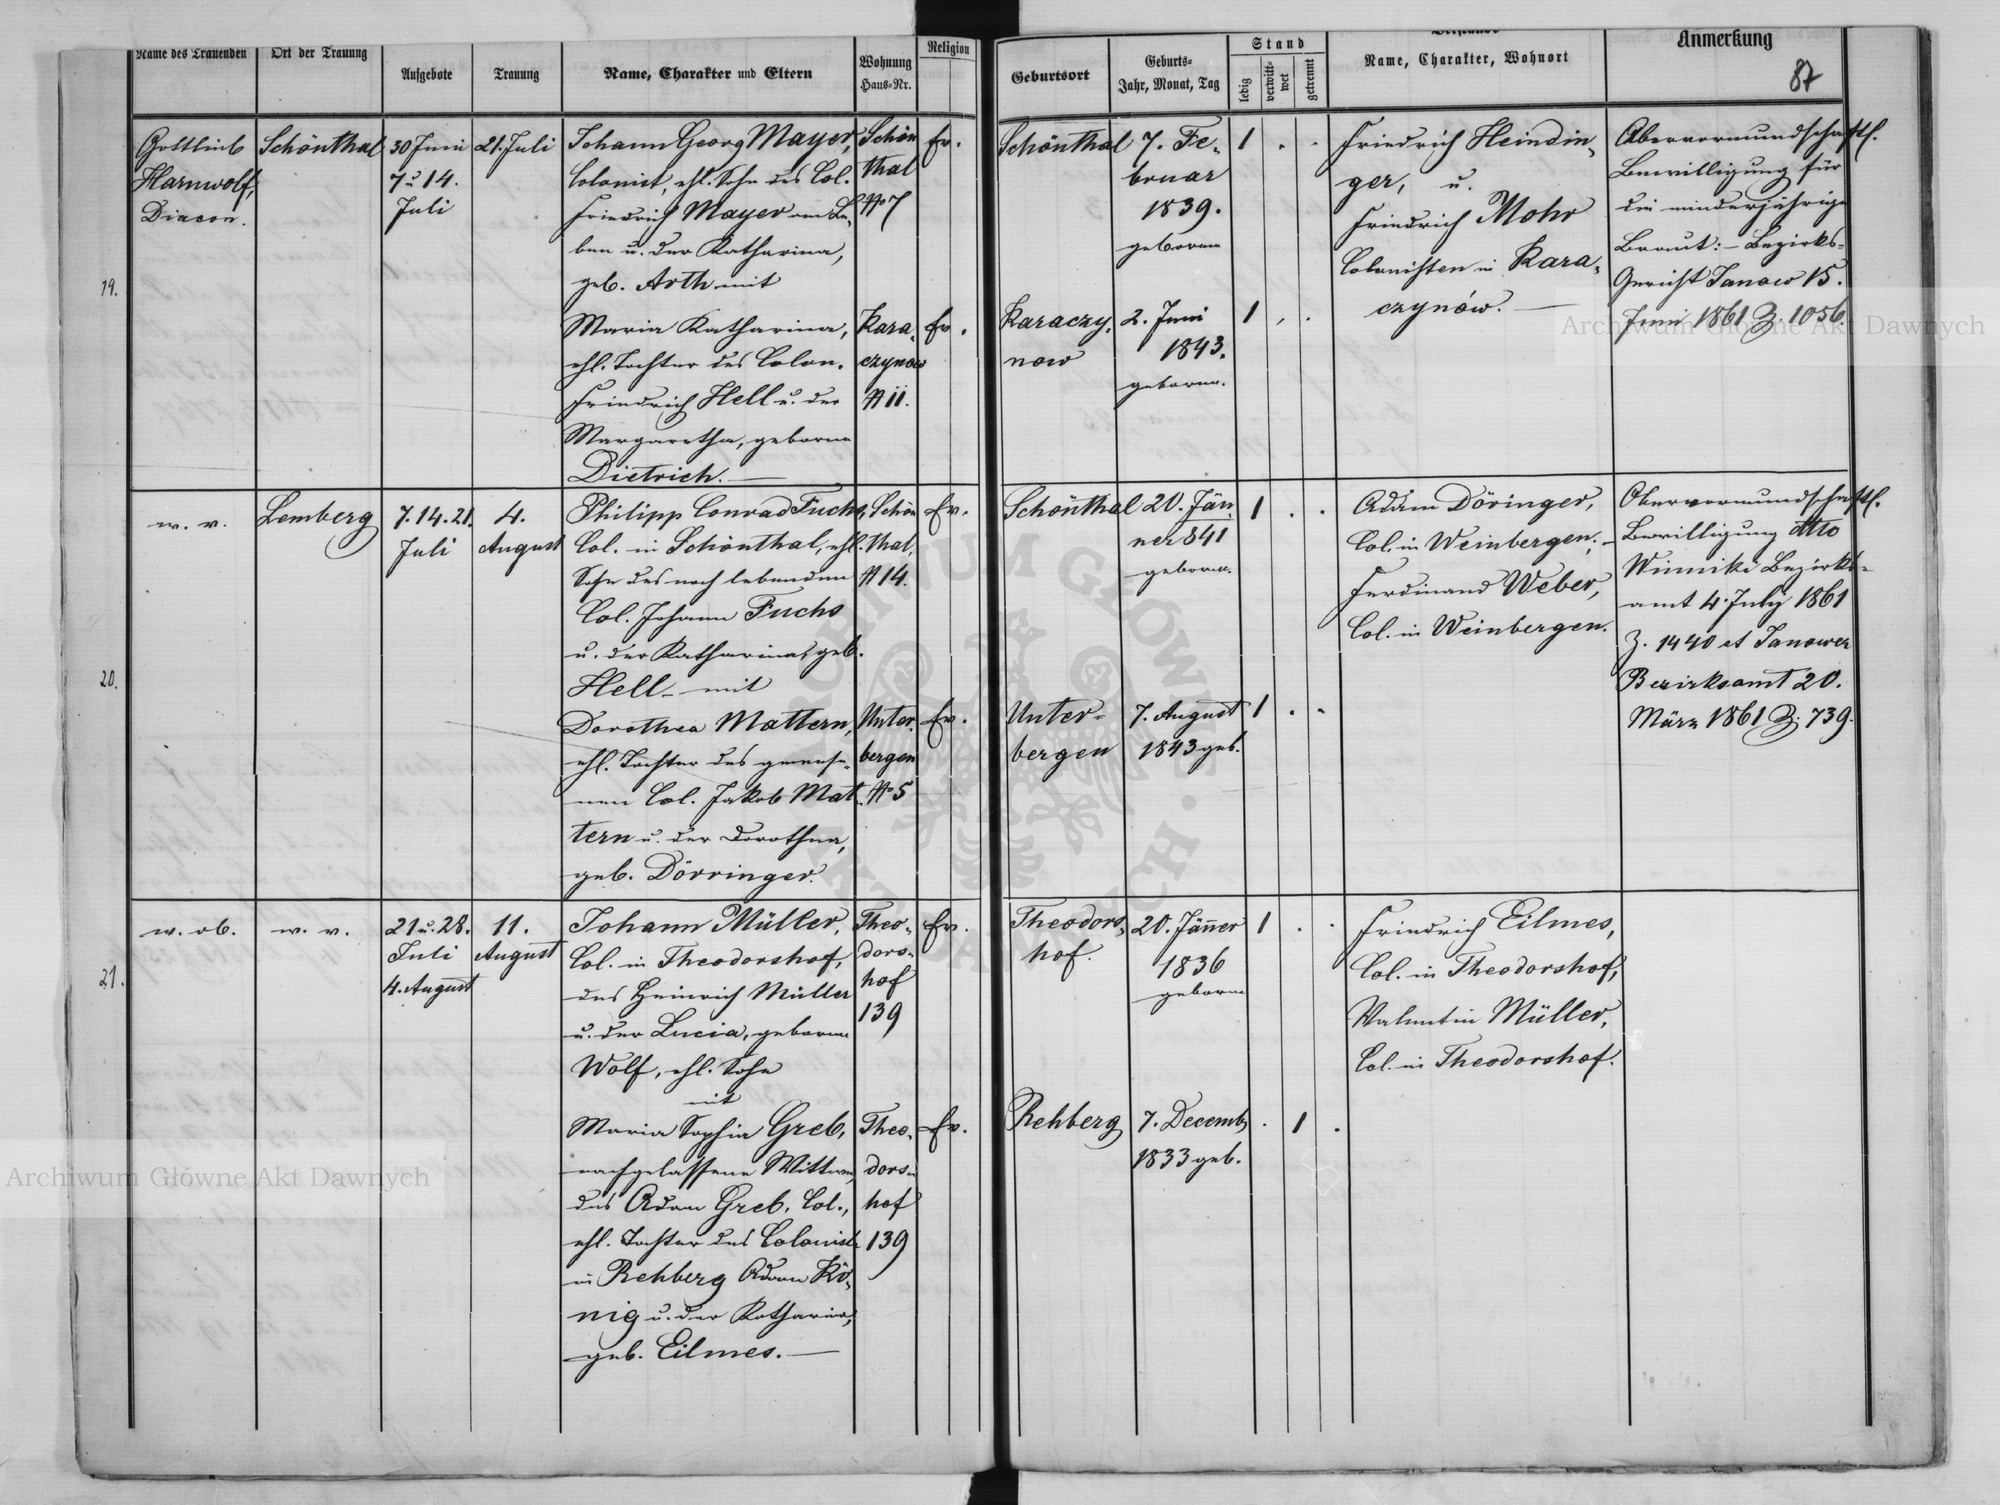 Name des Trauenden
Ort der Trauung
Aufgebote
Trauung
Name, Charakter und Eltern
Wohnung
Haus-Nr.
Religion
Geburtsort
Geburts-
Jahr, Monat, Tag
Stand
ledig
verwitt-
wet
getrennt
Beistände
Name, Charakter, Wohnort
Anmerkung
87
19.
Gottlieb
Harnwolf,
Diacon.
Schönthal
30 Juni
7 u 14.
Juli
21. Juli
Johann Georg Mayer,
Colonist, ehl. Sohn des Col.
Friedrich Mayer am Le-
ben u. der Katharina,
geb. Arth mit
Maria Katharina,
ehl. Tochter des Colon.
Friedrich Hell u. der
Margaretha, geborne
Dietrich. —
Schön
thal
N 7
Kara-
czynow
N 11.
Ev.
Ev.
Schönthal
Karaczy-
now
7. Fe-
bruar
1839.
geboren
2. Juni
1843.
geboren.
1 . .
1 . .
Friedrich Heindin-
ger, u.
Friedrich Mohr
Colonisten in Kara-
czynów. —
Obervormundschaftl.
Bewilligung für
die minderjährige
Braut: – Bezirks-
Gericht Janow 15.
Juni 1861 Z. 1056.
20.
w. v.
Lemberg
7. 14. 21.
Juli
4.
August
Philipp Conrad Fuchs,
Col. in Schönthal, ehl.
Sohn des noch lebenden
Col. Johann Fuchs
u. der Katharina, geb.
Hell – mit
Dorothea Mattern,
ehl. Tochter des gewese-
nen Col. Jakob Mat-
tern u. der Dorothea,
geb. Dörringer.
Schön
thal,
N 14.
Unter-
bergen
N 5
Ev.
Ev.
Schönthal
Unter-
bergen
20. Jän-
ner 841
geboren.
7. August
1843 geb.
1 . .
1 . .
Adam Döringer,
Col. in Weinbergen; –
Ferdinand Weber,
Col. in Weinbergen.
Obervormundschaftl.
Bewilligung dtto
Winniki Bezirks-
amt 4. July 1861
Z. 1440 et Janower
Bezirksamt 20.
März 1861 Z. 739.
21.
w. ob.
w. v.
21 u. 28.
Juli
4. August
11.
August
Johann Müller,
Col. in Theodorshof,
des Heinrich Müller
u. der Lucia, geborne
Wolf, ehl. Sohn
mit
Maria Sophia Greb,
nachgelassene Wittwe
des Adam Greb, Col.,
ehl. Tochter des Colonist.
in Rehberg Adam Kö-
nig u. der Katharina,
geb. Eilmes. —
Theo-
dors-
hof
139
Theo-
dors-
hof
139
Ev.
Ev.
Theodors-
hof.
Rehberg
20. Jänner
1836
geboren
7. Decemb
1833 geb.
1 . .
. 1 .
Friedrich Eilmes,
Col. in Theodorshof,
Valentin Müller,
Col. in Theodorshof.
Archiwum Główne Akt Dawnych
Archiwum Główne Akt Dawnych
ARCHIWUM GŁÓWNE AKT DAWNYCH